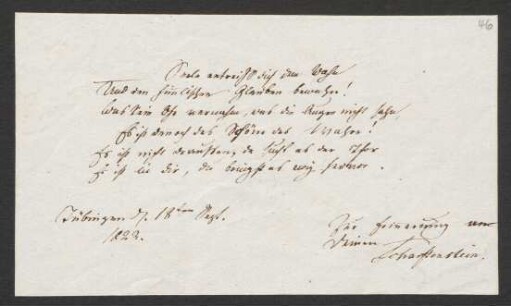 46
Seele entreiß dich dem Wahn
Und den himmlischen Glauben bewahre!
Was kein Ohr vernahm, was die Augen nicht sahn,
Es ist dennoch das Schöne das Wahre!
Es ist nicht draußen, da sucht es der Thor
Es ist in dir, du bringst es ewig hervor.
Tübingen d. 18ten Sept.
1823.
Zur Erinnerung an
Deinen
Scharffenstein.